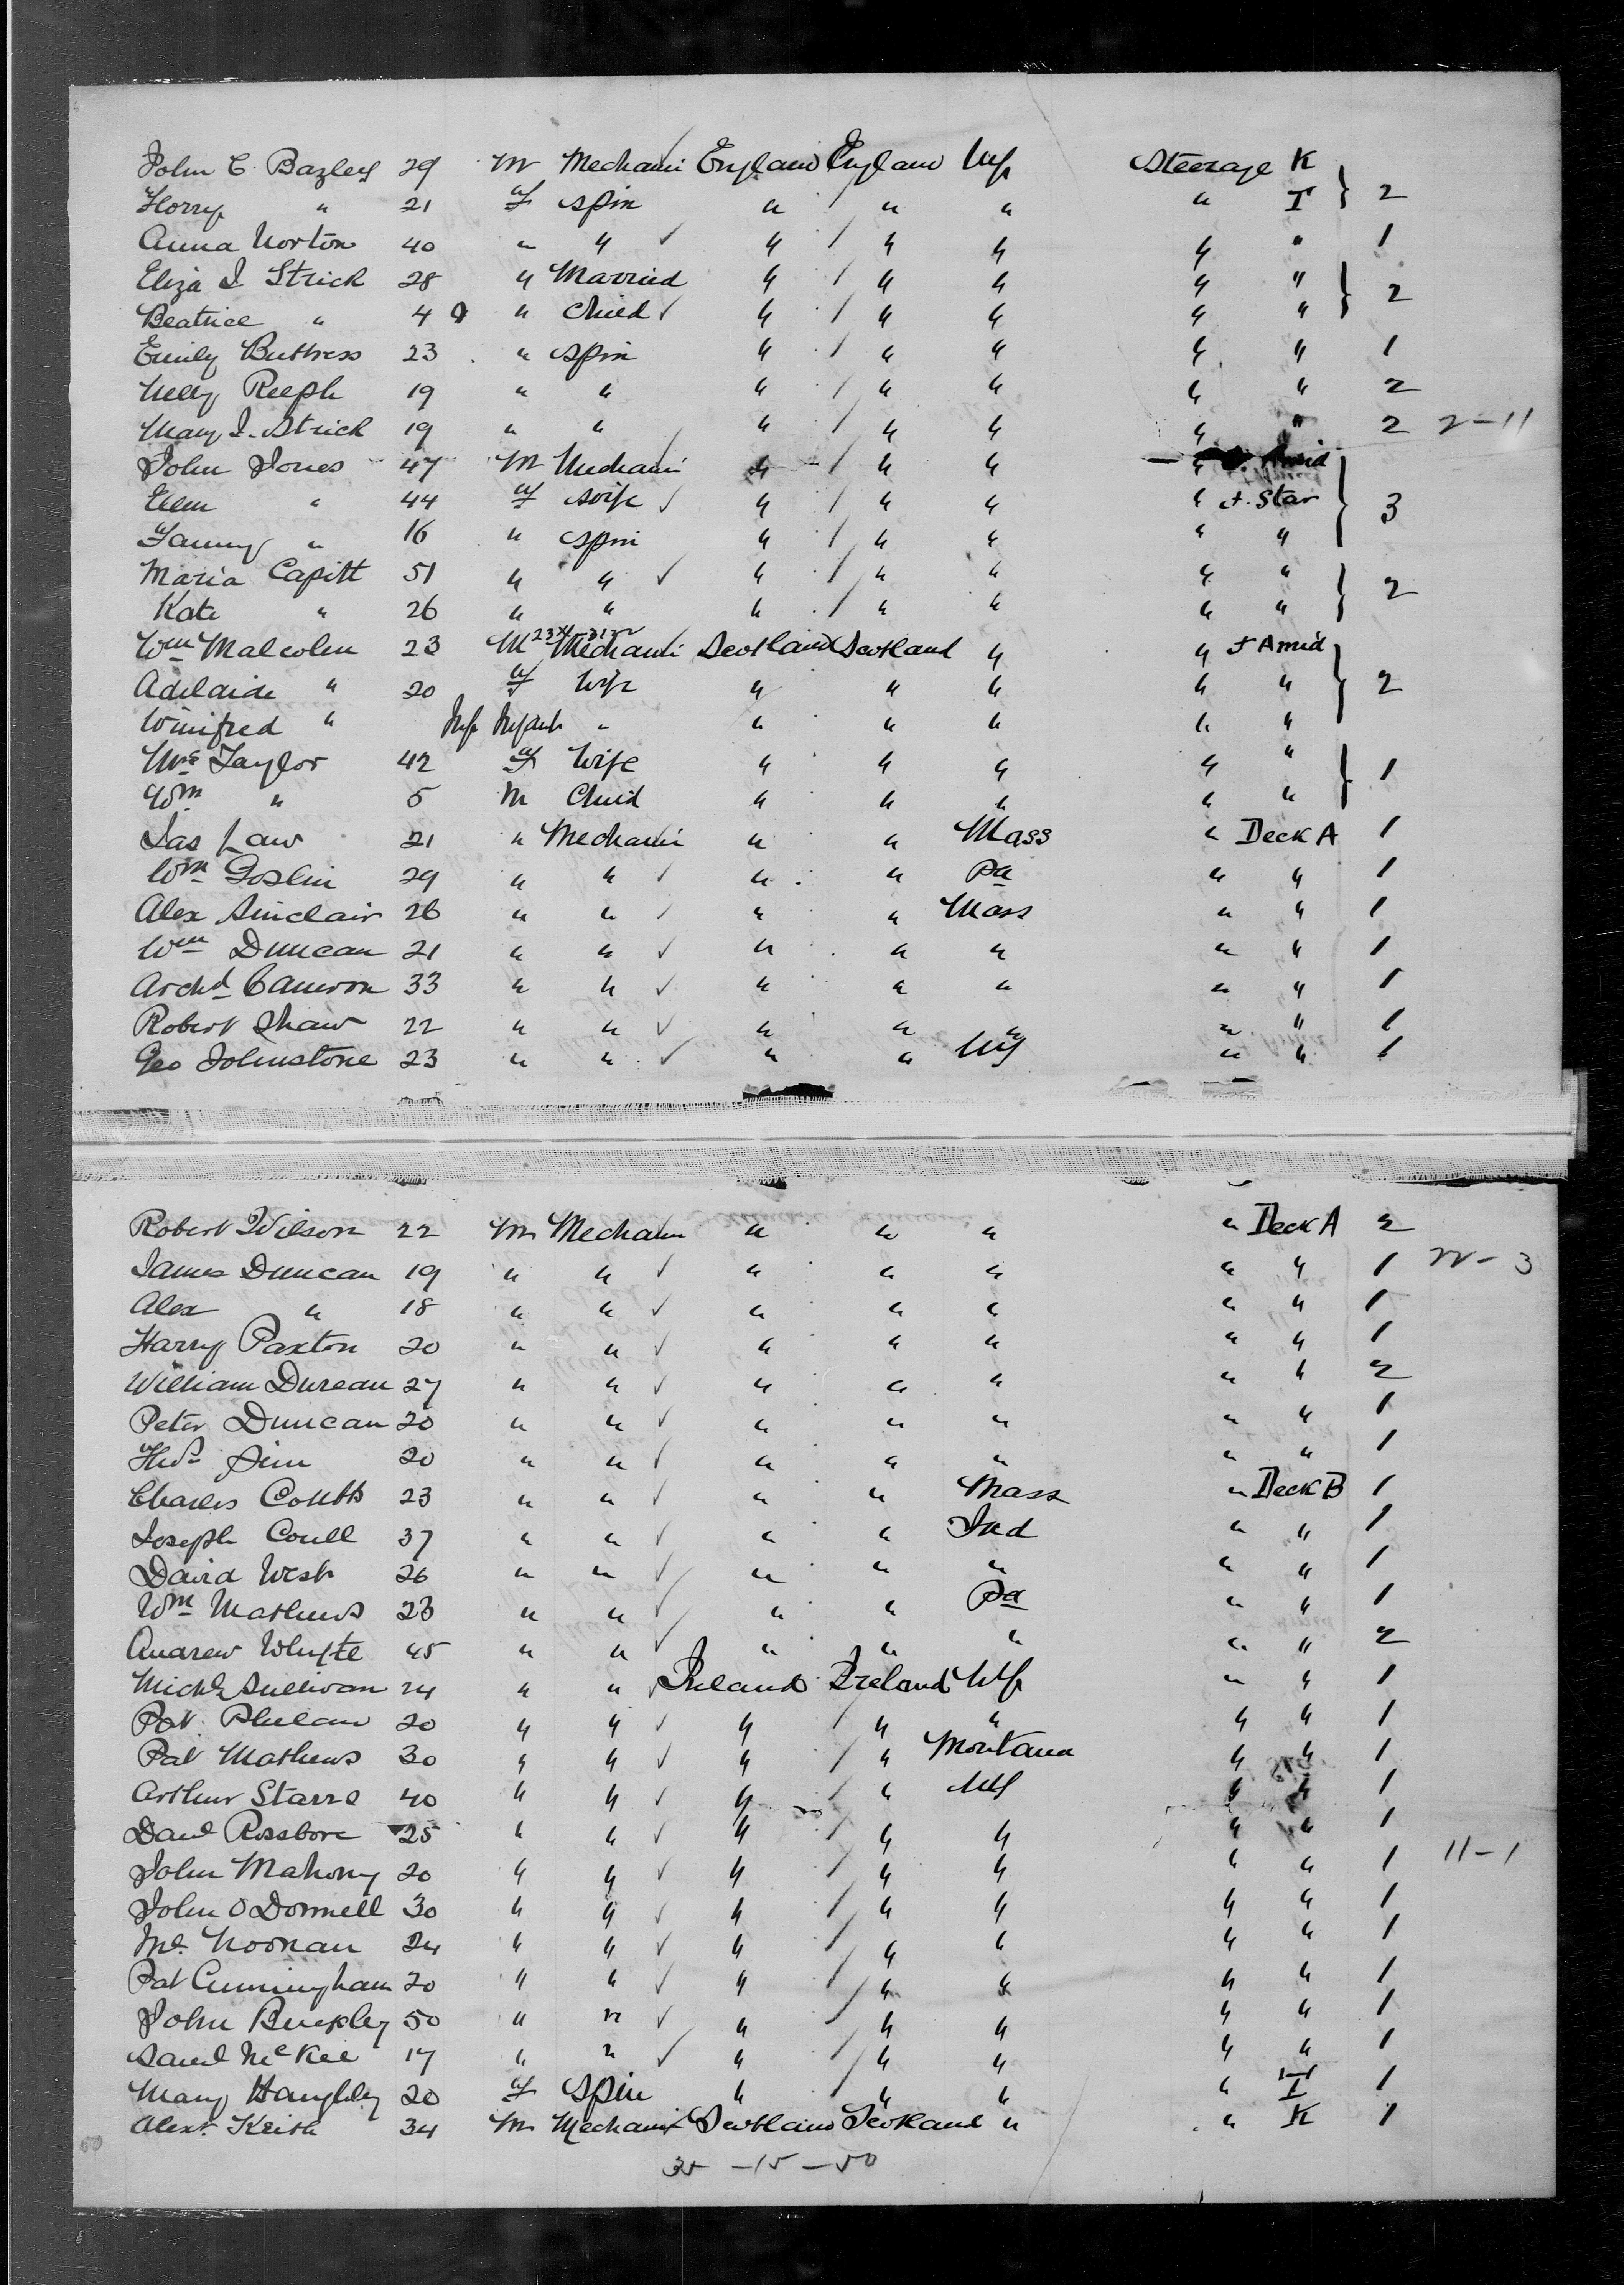 John C. Bazley 29 M Mechanic England England NY Steerage K
Florry " 21 F Spin " " " " I } 2
Anna Norton 40 " " " " " " " 1
Eliza J. Strick 28 " Married " " " " "
Beatrice " 4 " Child " " " " " } 2
Emily Buttress 23 " Spin " " " " " 1
Nelly Reeph 19 " " " " " " " 2
Mary J. Strick 19 " " " " " " " 2 2-11
John Jones 47 M Mechanic " " " " Amid
Ellen " 44 F Wife " " " " F. Star } 3
Fanny " 16 " Spin " " " " "
Maria Capitt 51 " " " " " " "
Kate " 26 " " " " " " " } 2
Wm Malcolm 23 M Mechanic Scotland Scotland " " F Amid
Adelaide " 20 F Wife " " " " " } 2
Winifred " Inf Infant " " " " " "
Mrs Taylor 42 F Wife " " " " "
Wm " 5 M Child " " " " " } 1
Jas Law 21 " Mechanic " " Mass " Deck A 1
Wm Goslin 29 " " " " Pa " " 1
Alex Sinclair 26 " " " " Mass " " 1
Wm Duncan 21 " " " " " " " 1
Archd Cameron 33 " " " " " " " 1
Robert Shaw 22 " " " " " " " 1
Geo Johnstone 23 " " " " NY " " 1
Robert Wilson 22 M Mechanic " " " " Deck A 2
James Duncan 19 " " " " " " " 1 22-3
Alex " 18 " " " " " " " 1
Harry Paxton 20 " " " " " " " 1
William Duncan 27 " " " " " " " 2
Peter Duncan 20 " " " " " " " 1
Thos Sim 20 " " " " " " " 1
Charles Coutts 23 " " " " Mass " Deck B 1
Joseph Coull 37 " " " " Ind " " 1
David West 26 " " " " " " " 1
Wm Mathews 23 " " " " Pa " " 1
Andrew Whyte 45 " " " " " " " 2
Michl Sullivan 24 " " Ireland Ireland NY " " 1
Pat Phelan 20 " " " " " " " 1
Pat Mathews 30 " " " " Montana " " 1
Arthur Starrs 40 " " " " NY " " 1
Danl Rossbore 25 " " " " " " " 1
John Mahony 20 " " " " " " " 1 11-1
John O'Donnell 30 " " " " " " " 1
Jno. Noonan 24 " " " " " " " 1
Pat Cunningham 20 " " " " " " " 1
John Buckley 50 " " " " " " " 1
Saml McKee 17 " " " " " " " 1
Mary Haughey 20 F Spin " " " " I 1
Alexr. Keith 34 M Mechanic Scotland Scotland " " K 1
35 - 15 - 50